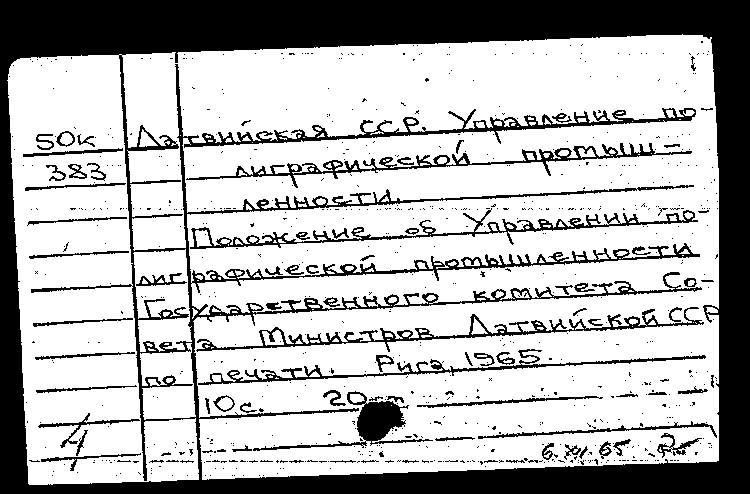 50к Латвийская ССР. Управление по-
383 лиграфической промыш-
ленности.
Положение об Управлении по-
лиграфической промышленности
Государственного комитета Со-
вета Министров Латвийской ССР
по печати. Рига, 1965.
10 с. 20
4
6.XII.65